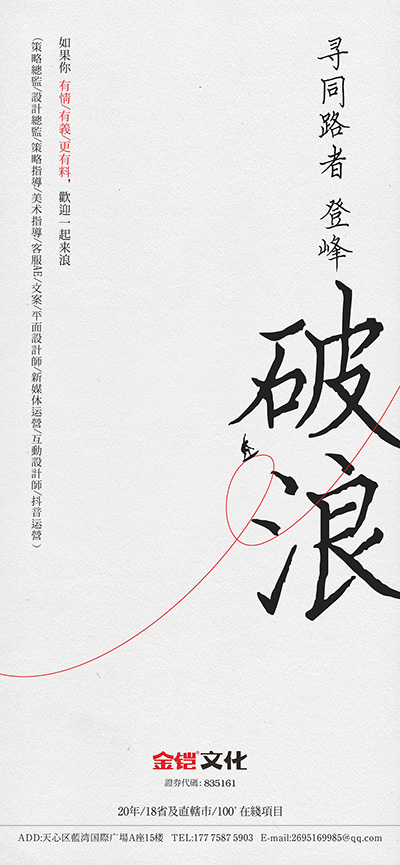 寻同路者 登峰
破浪
如果你 有情/有義/更有料，歡迎一起来浪
(策略總監/設計總監/策略指導/美术指導/客服AE/文案/平面設計師/新媒体运營/互動設計師/抖音运營)
金铠®文化
證券代碼: 835161
20年/18省及直轄市/100+在綫項目
ADD:天心区藍湾国際广場A座15楼 TEL:177 7587 5903 E-mail:2695169985@qq.com